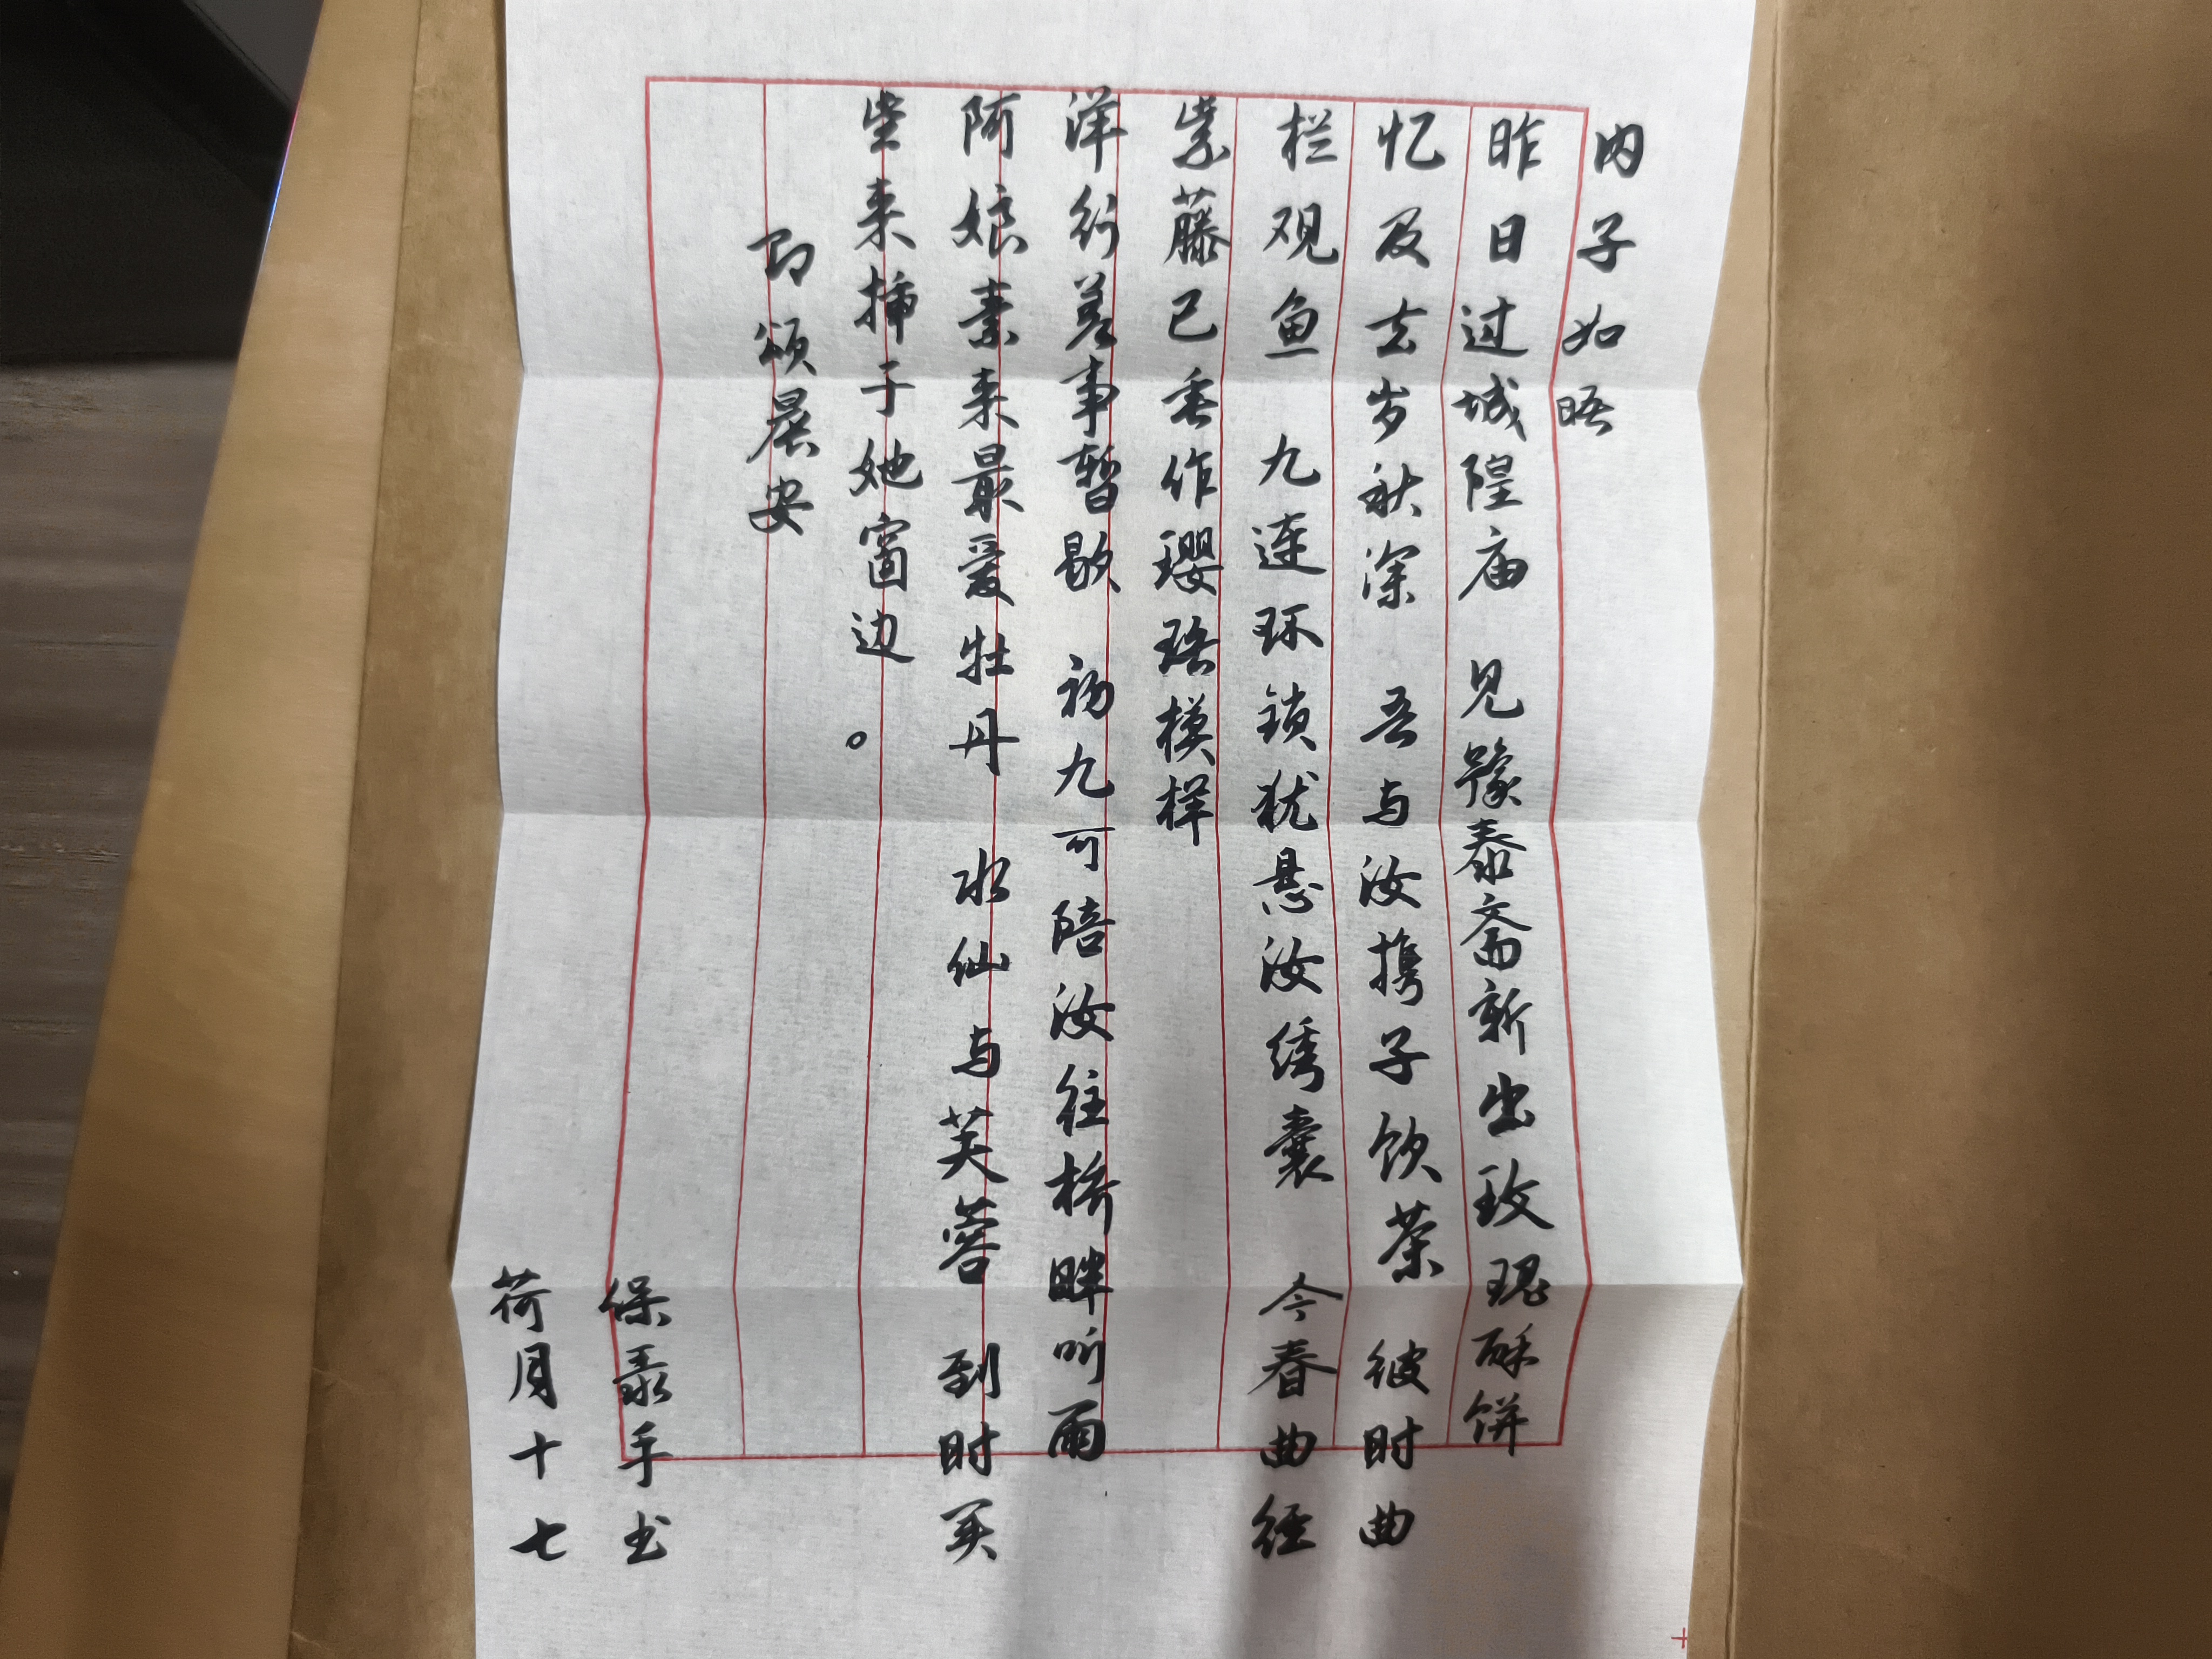 内子如晤
昨日过城隍庙 见豫泰斋新出玫瑰酥饼
忆及去岁秋深 吾与汝携子饮茶 彼时曲
栏观鱼 九连环锁犹悬汝绣囊 今春曲径
紫藤已垂作璎珞模样
洋行差事暂歇 初九可陪汝往桥畔听雨
阿娘素来最爱牡丹 水仙与芙蓉 到时买
些来插于她窗边。
即颂晨安
保泰手书
荷月十七